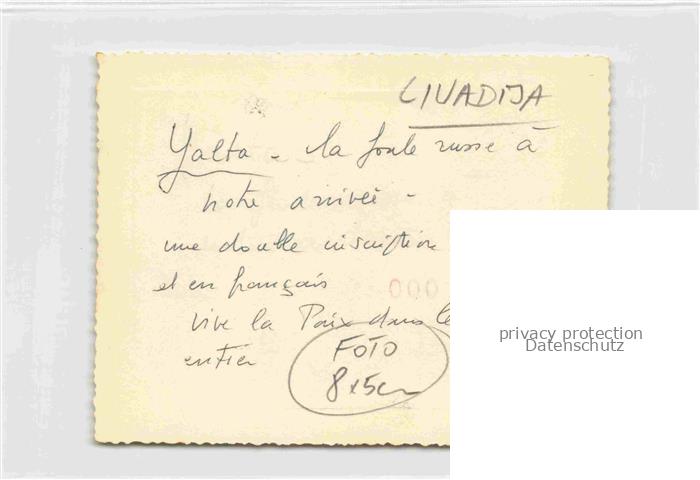 LIVADIJA
Yalta - la foule russe à
notre arrivée -
une double inscription
et en français
000
vive la Paix dans le
entier
FOTO
8x5cm
privacy protection
Datenschutz